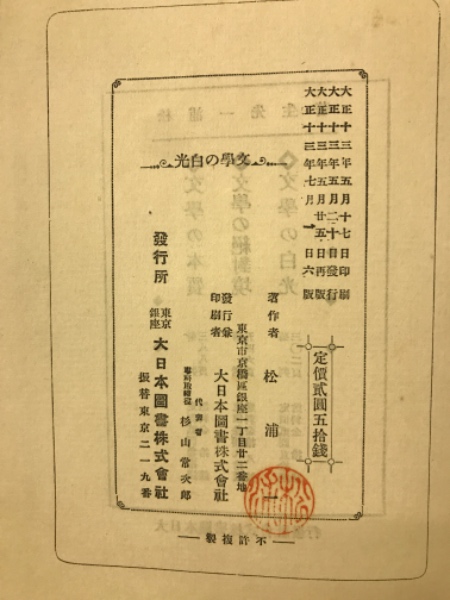 大正十三年五月十七日印刷
大正十三年五月二十日發行
大正十三年五月廿五日再版
大正十三年七月一日六版
定價貳圓五拾錢
文學の白光
著作者 松浦一
東京市京橋區銀座一丁目廿二番地
發行兼印刷者 大日本圖書株式會社
代表者
專務取締役 杉山常次郎
發行所 東京銀座 大日本圖書株式會社
振替東京二一九番
不許複製